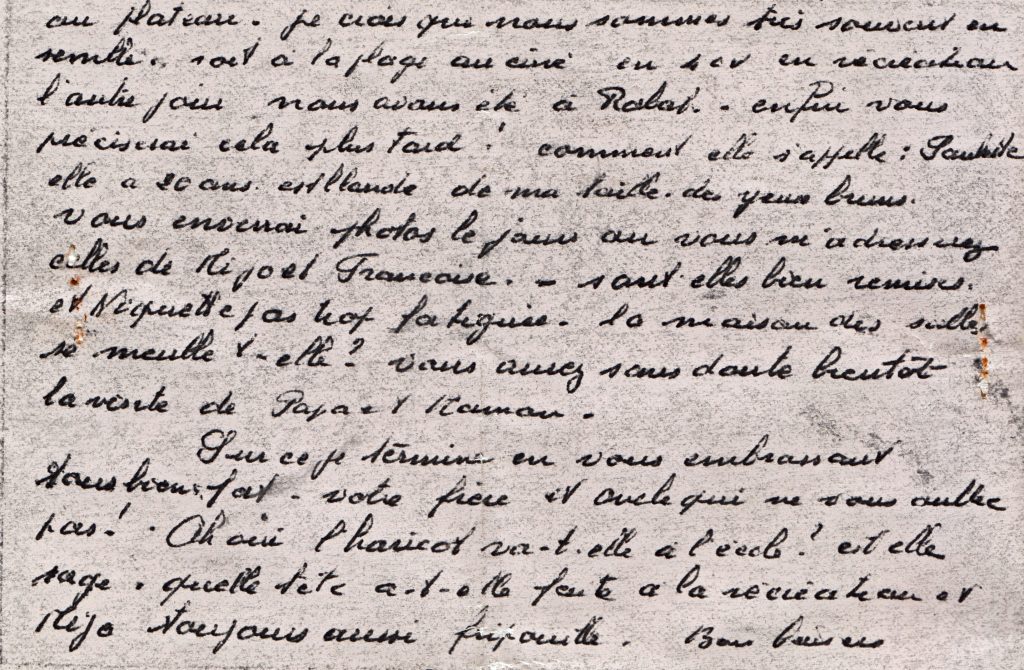 au plateau. je crois que nous sommes très souvent en
semble. soit à la plage au ciné en 4cv en récréation
l'autre jour nous avons été à Rabat. enfin vous
préciserai cela plus tard ! comment elle s'appelle : Paulette
elle a 20 ans. est blonde de ma taille. des yeux bruns.
vous enverrai photos le jour ou vous m'adresserez
celles de Mijo et Francoise. - sont elles bien remises.
et Niquette pas trop fatiguée. la maison des
se meuble t-elle ? vous aurez sans doute bientôt
la visite de Papa et Maman.
Sur ce je termine en vous embrassant
tous bien fort. votre frère et oncle qui ne vous oublie
pas ! Ah oui l'haricot va-t-elle à l'école ? est elle
sage. quelle tête a-t-elle faite à la récréation et
Mijo toujours aussi fripouille. Bons baisers